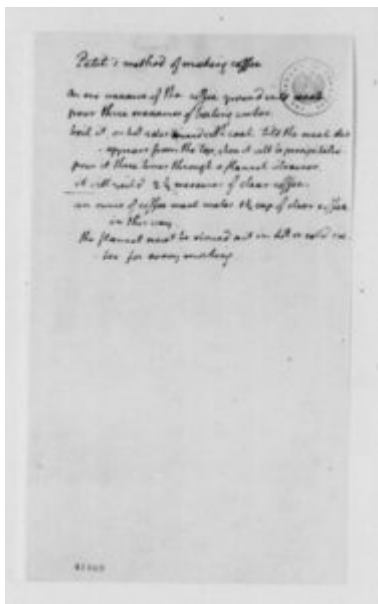 Petit's method of making coffee
On one measure of the coffee ground into meal
pour three measures of boiling water.
boil it, on hot ashes with coal till the meal dis-
appears from the top, when it will be precipitated
pour it three times through a flannel strainer.
it will yield 2 1/3 measures of clear coffee.
an ounce of coffee meal makes 1 1/2 cup of clear coffee
in this way.
the flannel must be rinsed out in hot or cold wa-
ter for every making.